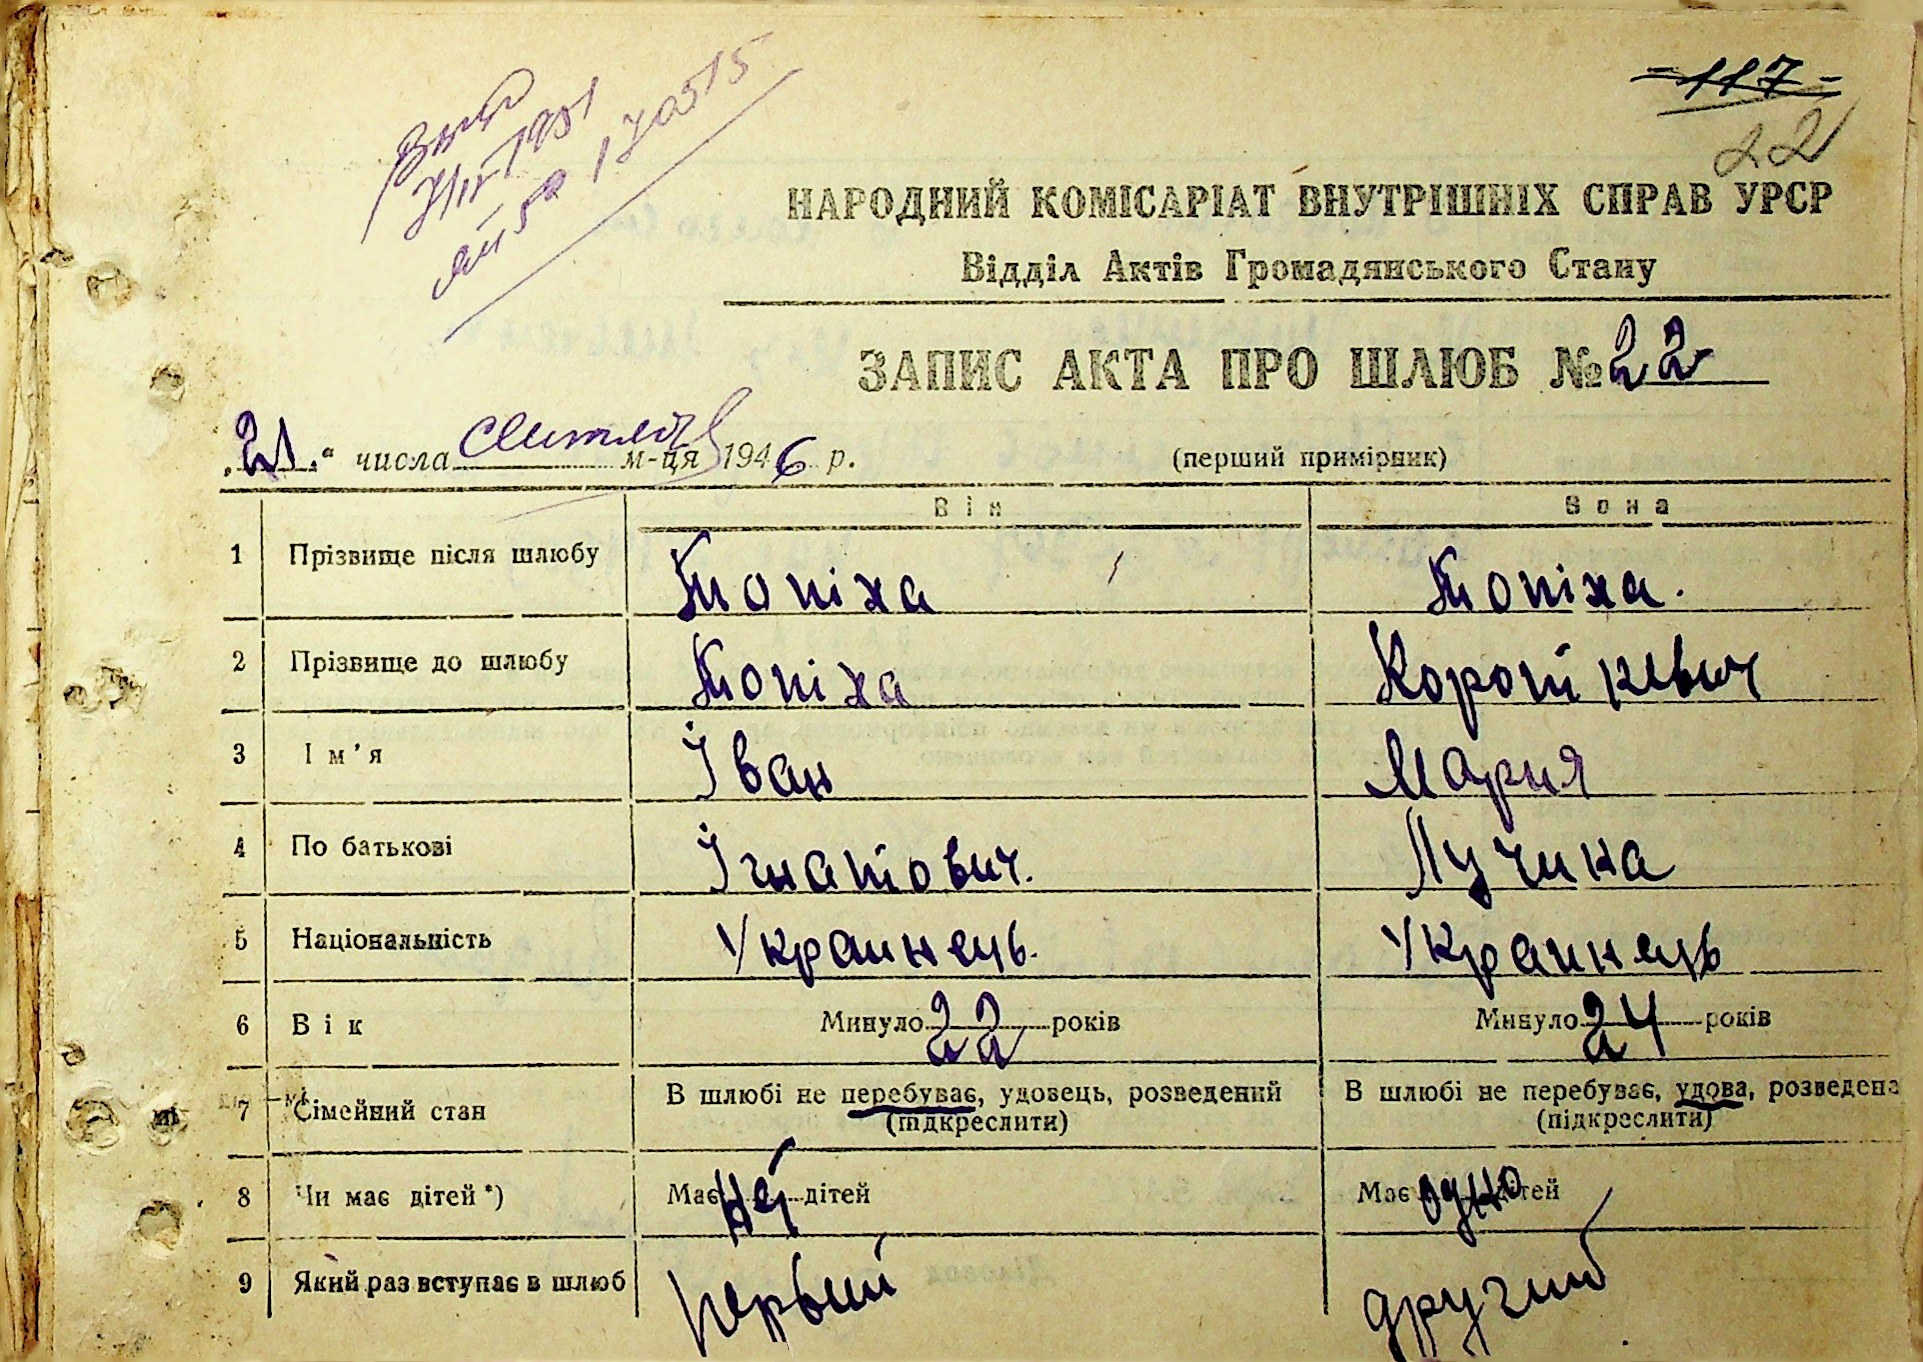 -117-
22
7/IV-1951
170515
НАРОДНИЙ КОМІСАРІАТ ВНУТРІШНІХ СПРАВ УРСР
Відділ Актів Громадянського Стану
ЗАПИС АКТА ПРО ШЛЮБ № 22
„21.“ числа м-ця 1946 р. (перший примірник)
Він Вона
1 Прізвище після шлюбу Топіха Топіха.
2 Прізвище до шлюбу Топіха Короткевич
3 Ім'я Іван Мария
4 По батькові Ігнатович. Лучика
5 Національність Украинець. Украинець
6 Вік Минуло 22 років Минуло 24 років
7 Сімейний стан В шлюбі не перебуває, удовець, розведений В шлюбі не перебуває, удова, розведена
(підкреслити) (підкреслити)
8 Чи має дітей *) Має неі дітей Має одно дітей
9 Який раз вступає в шлюб первый другий